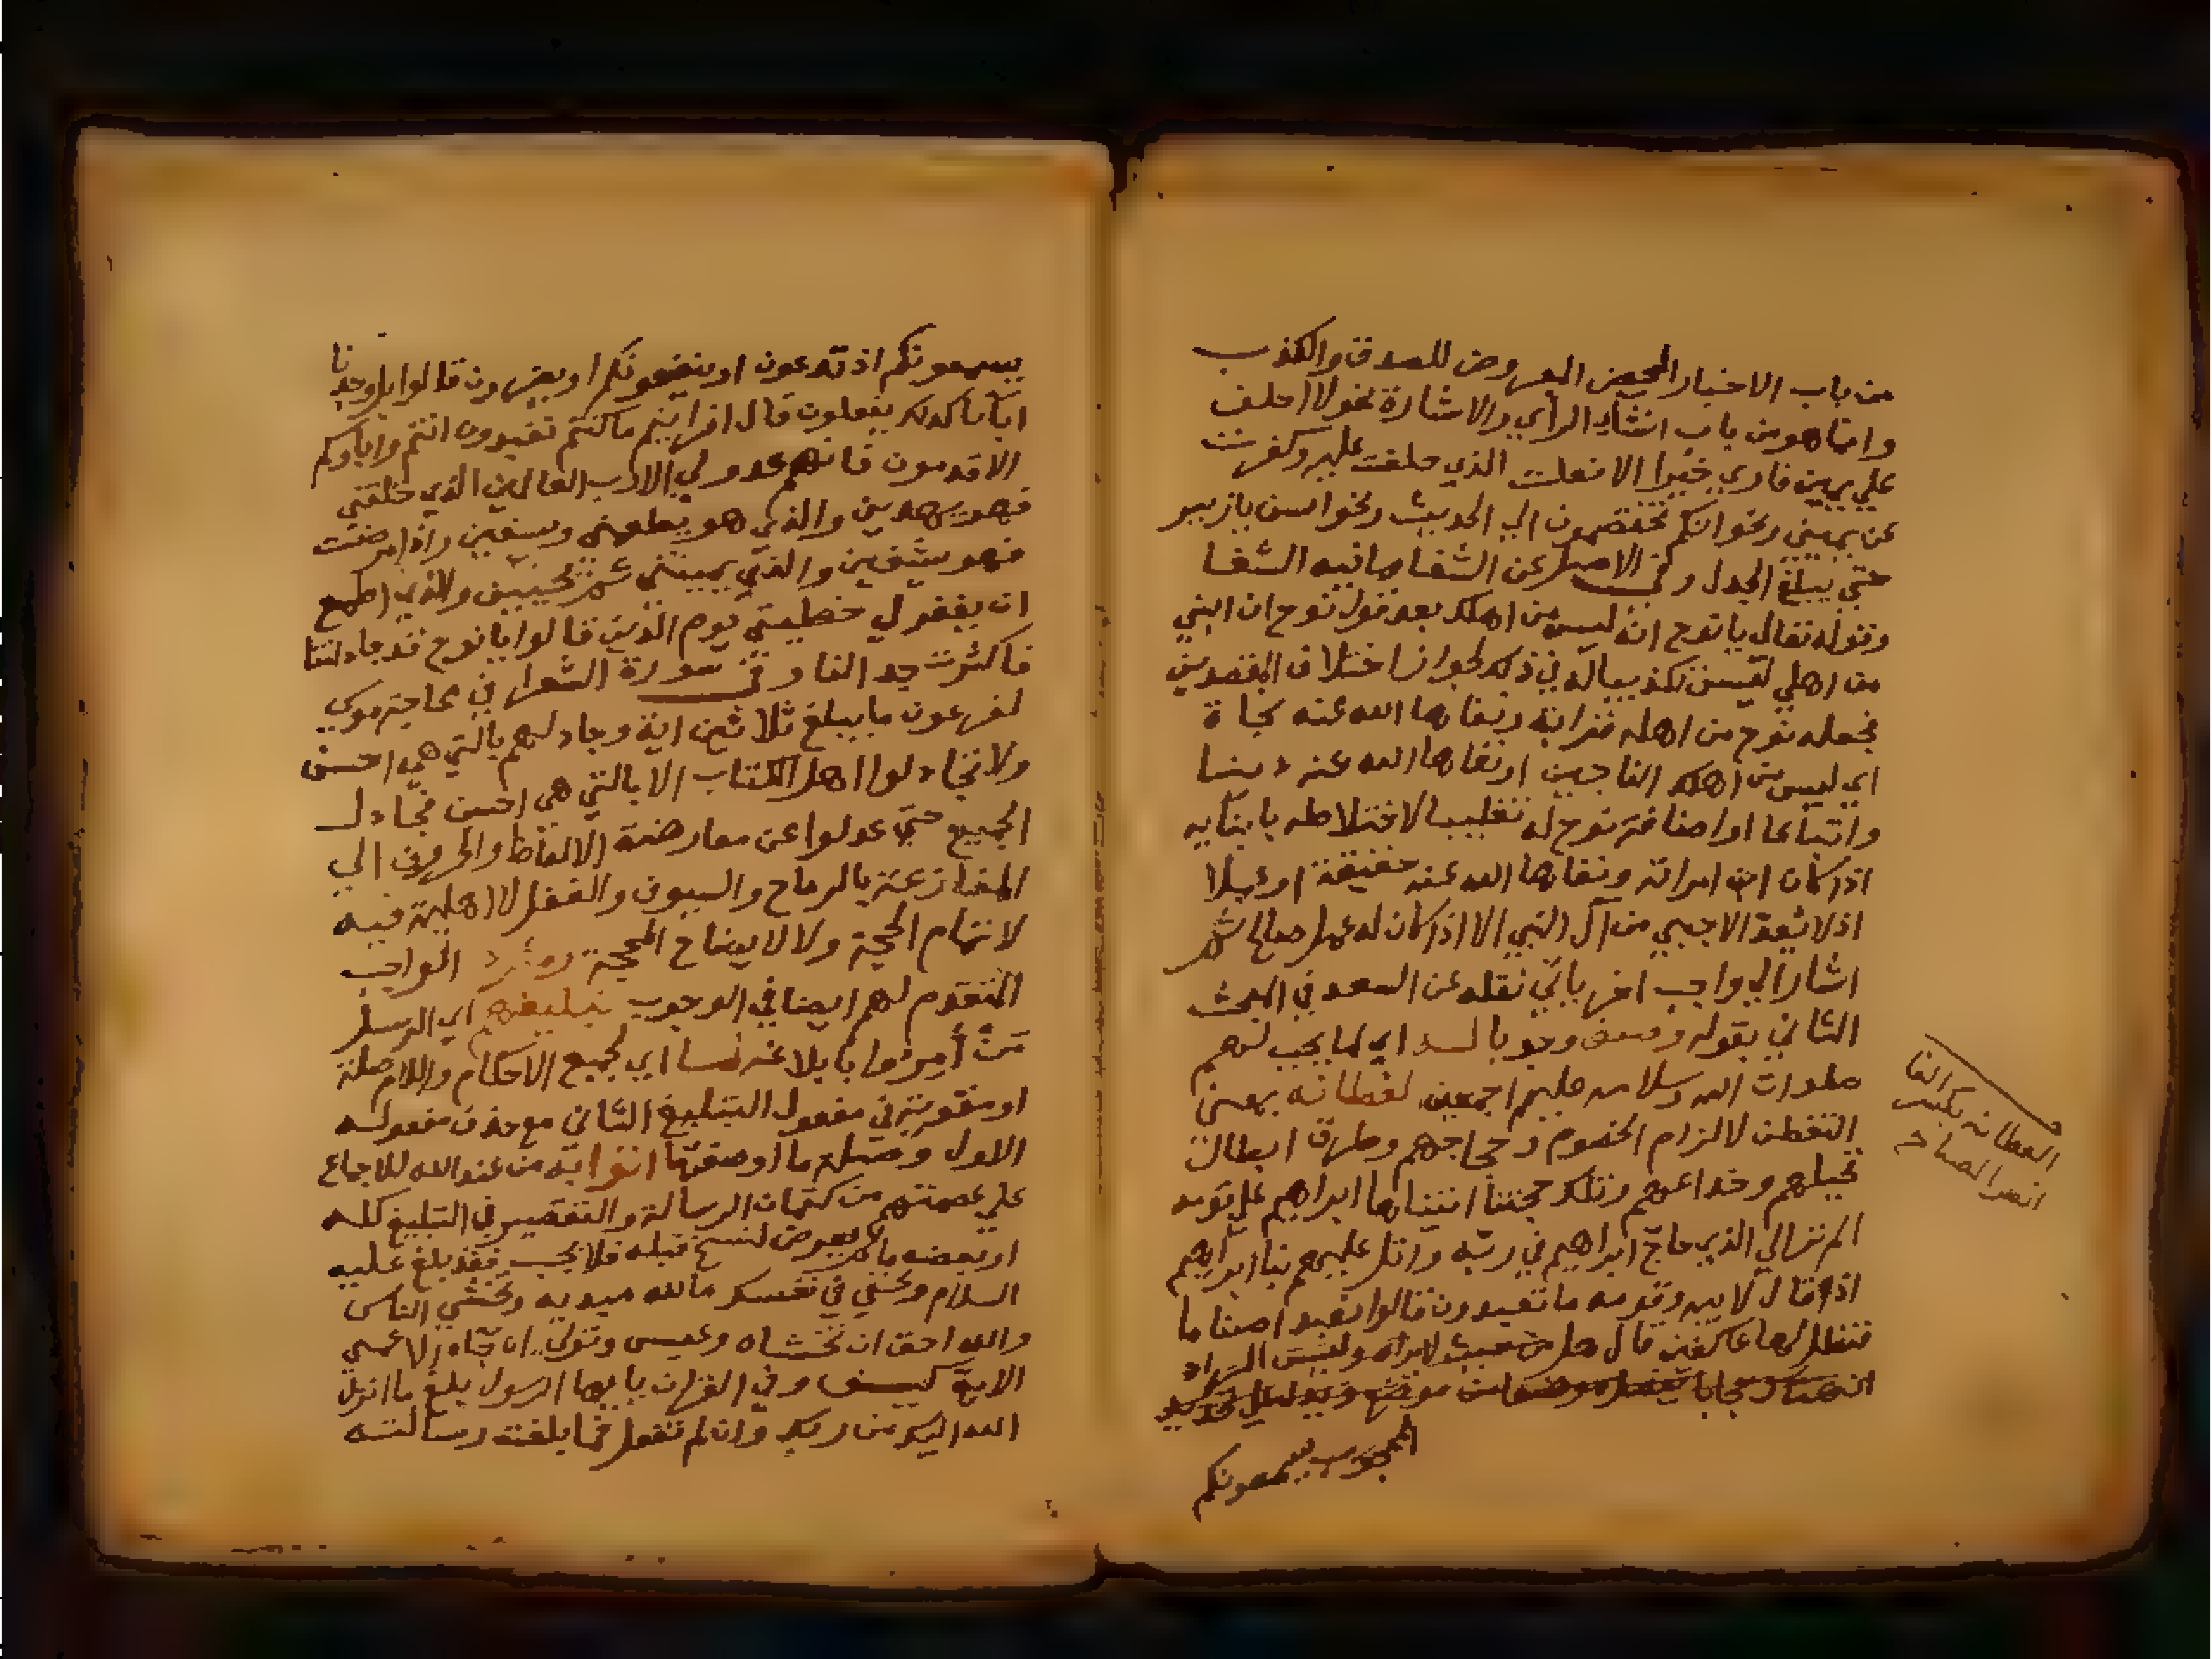 من باب الاخبار المحض المعروض للصدق والكذب
وانما هو من باب انشاء الراي والاشارة نحو لا احلف
علي يمين فاري خيرا الا فعلت الذي حلفت عليه وكفرت
عن يميني ونحو انكم تختصمون الي الحديث ونحو اسق يا زبير
حتي يبلغ الجدل وفي الاصل عن الشفا ما فيه الشفا
وقوله تعالي يا نوح انه ليس من اهلك بعد قول نوح ان ابني
من اهلي ليس تكذيبا له في ذلك لجواز اختلاف المقصدين
فجعله نوح من اهله قرابة ونفاها الله عنه نجاة
اي ليس من اهلك الناجين او نفاها الله عنه دينا
واتباعا او اضافة نوح له تغليبا لاختلاطه بابنايه
اذ كان ابن امراته ونفاها الله عنه حقيقة او عملا
اذ لا يعد الاجنبي من آل النبي الا اذا كان له عمل صالح ثم
اشار الي واجب اخر ياتي نقله عن السعد في المبحث
الثاني بقوله وصف وجوبا لـ اي لما يجب لهم
صلوات الله وسلامه عليهم اجمعين لفطانه بمعني
التفطن لالزام الخصوم وحجاجهم وطرق ابطال
تحيلهم وخداعهم وتلك حجتنا اتيناها ابراهيم علي قومه
الم تر الي الذي حاج ابراهيم في ربه واتل عليهم نبا ابراهيم
اذ قال لابيه وقومه ما تعبدون قالوا نعبد اصناما
فنظل لها عاكفين قال هل وليس المراد
يسمعونكم
الفطانه بكسر الفا
يسمعونكم اذ تدعون او ينفعونكم او يضرون قالوا بل وجدنا
اباءنا كذلك يفعلون قال افرايتم ما كنتم تعبدون انتم واباوكم
الاقدمون فانهم عدو لي الا رب العالمين الذي خلقني
فهو يهدين والذي هو يطعمني ويسقين واذا مرضت
فهو يشفين والذي يميتني ثم يحيين والذي اطمع
ان يغفر لي خطيئتي يوم الدين قالوا يا نوح قد جادلتنا
فاكثرت جدالنا وفي سورة الشعرا في محاجة موسي
لفرعون ما يبلغ ثلاثين اية وجادلهم بالتي هي احسن
ولا تجادلوا اهل الكتاب الا بالتي هي احسن فجادل
الجميع حتي عدلوا عن معارضة الالفاظ والحروف الي
المنازعة بالرماح والسيوف والغفل لا اهلية فيه
لاتمام الحجة ولا لايضاح المحجة ومثل ذا الواجب
المتقدم لهم ايضا في الوجوب تبليغهم اي الرسل
من أمروا بابلاغه لما اي لجميع الاحكام واللام صلة
او مقوية في مفعول التبليغ الثاني مع حذف مفعوله
الاول وصلة ما او صفتها اتوا به من عند الله للاجماع
علي عصمتهم من كتمان الرسالة والتقصير في التبليغ كله
او بعضه ما لم يعرض لنسخ قبله فلا يجب فقد بلغ عليه
السلام وتخفي في نفسك ما الله مبديه وتخشي الناس
والله احق ان تخشاه وعبس وتولي ان جاه الاعمي
الاية كيف وفي القران يا يها الرسول بلغ ما انزل
الله اليك من ربك وان لم تفعل فما بلغت رسالته